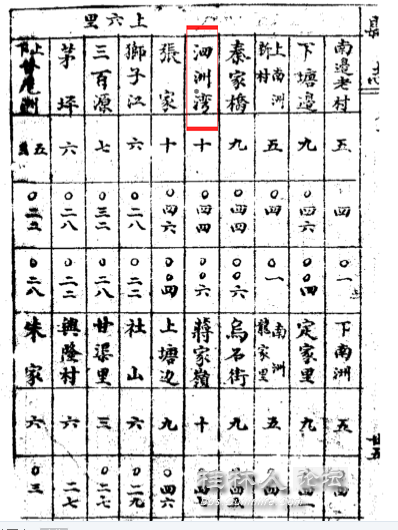 上六里
南邊老村 五 四 〇一 下南洲 五 四
下塘邊 九 〇四六 〇〇四 定家里 九
上南洲新村 五 〇四 〇一 南洲龍家里 五
秦家橋 九 〇四四 〇〇六 烏石街 九
泗洲湾 十 〇四四 〇〇六 蔣家嶺 十
張家 十 〇四六 〇〇四 上塘边 九 〇四六
獅子江 六 〇二八 〇二二 社山 六 〇二九
三百源 七 〇三二 〇二八 甘渠里 三 〇二七
茅坪 六 〇二八 〇二二 興隆村 六 二七
尾洲 五 〇二八 朱家 六 〇三
廿五
桂林人论坛